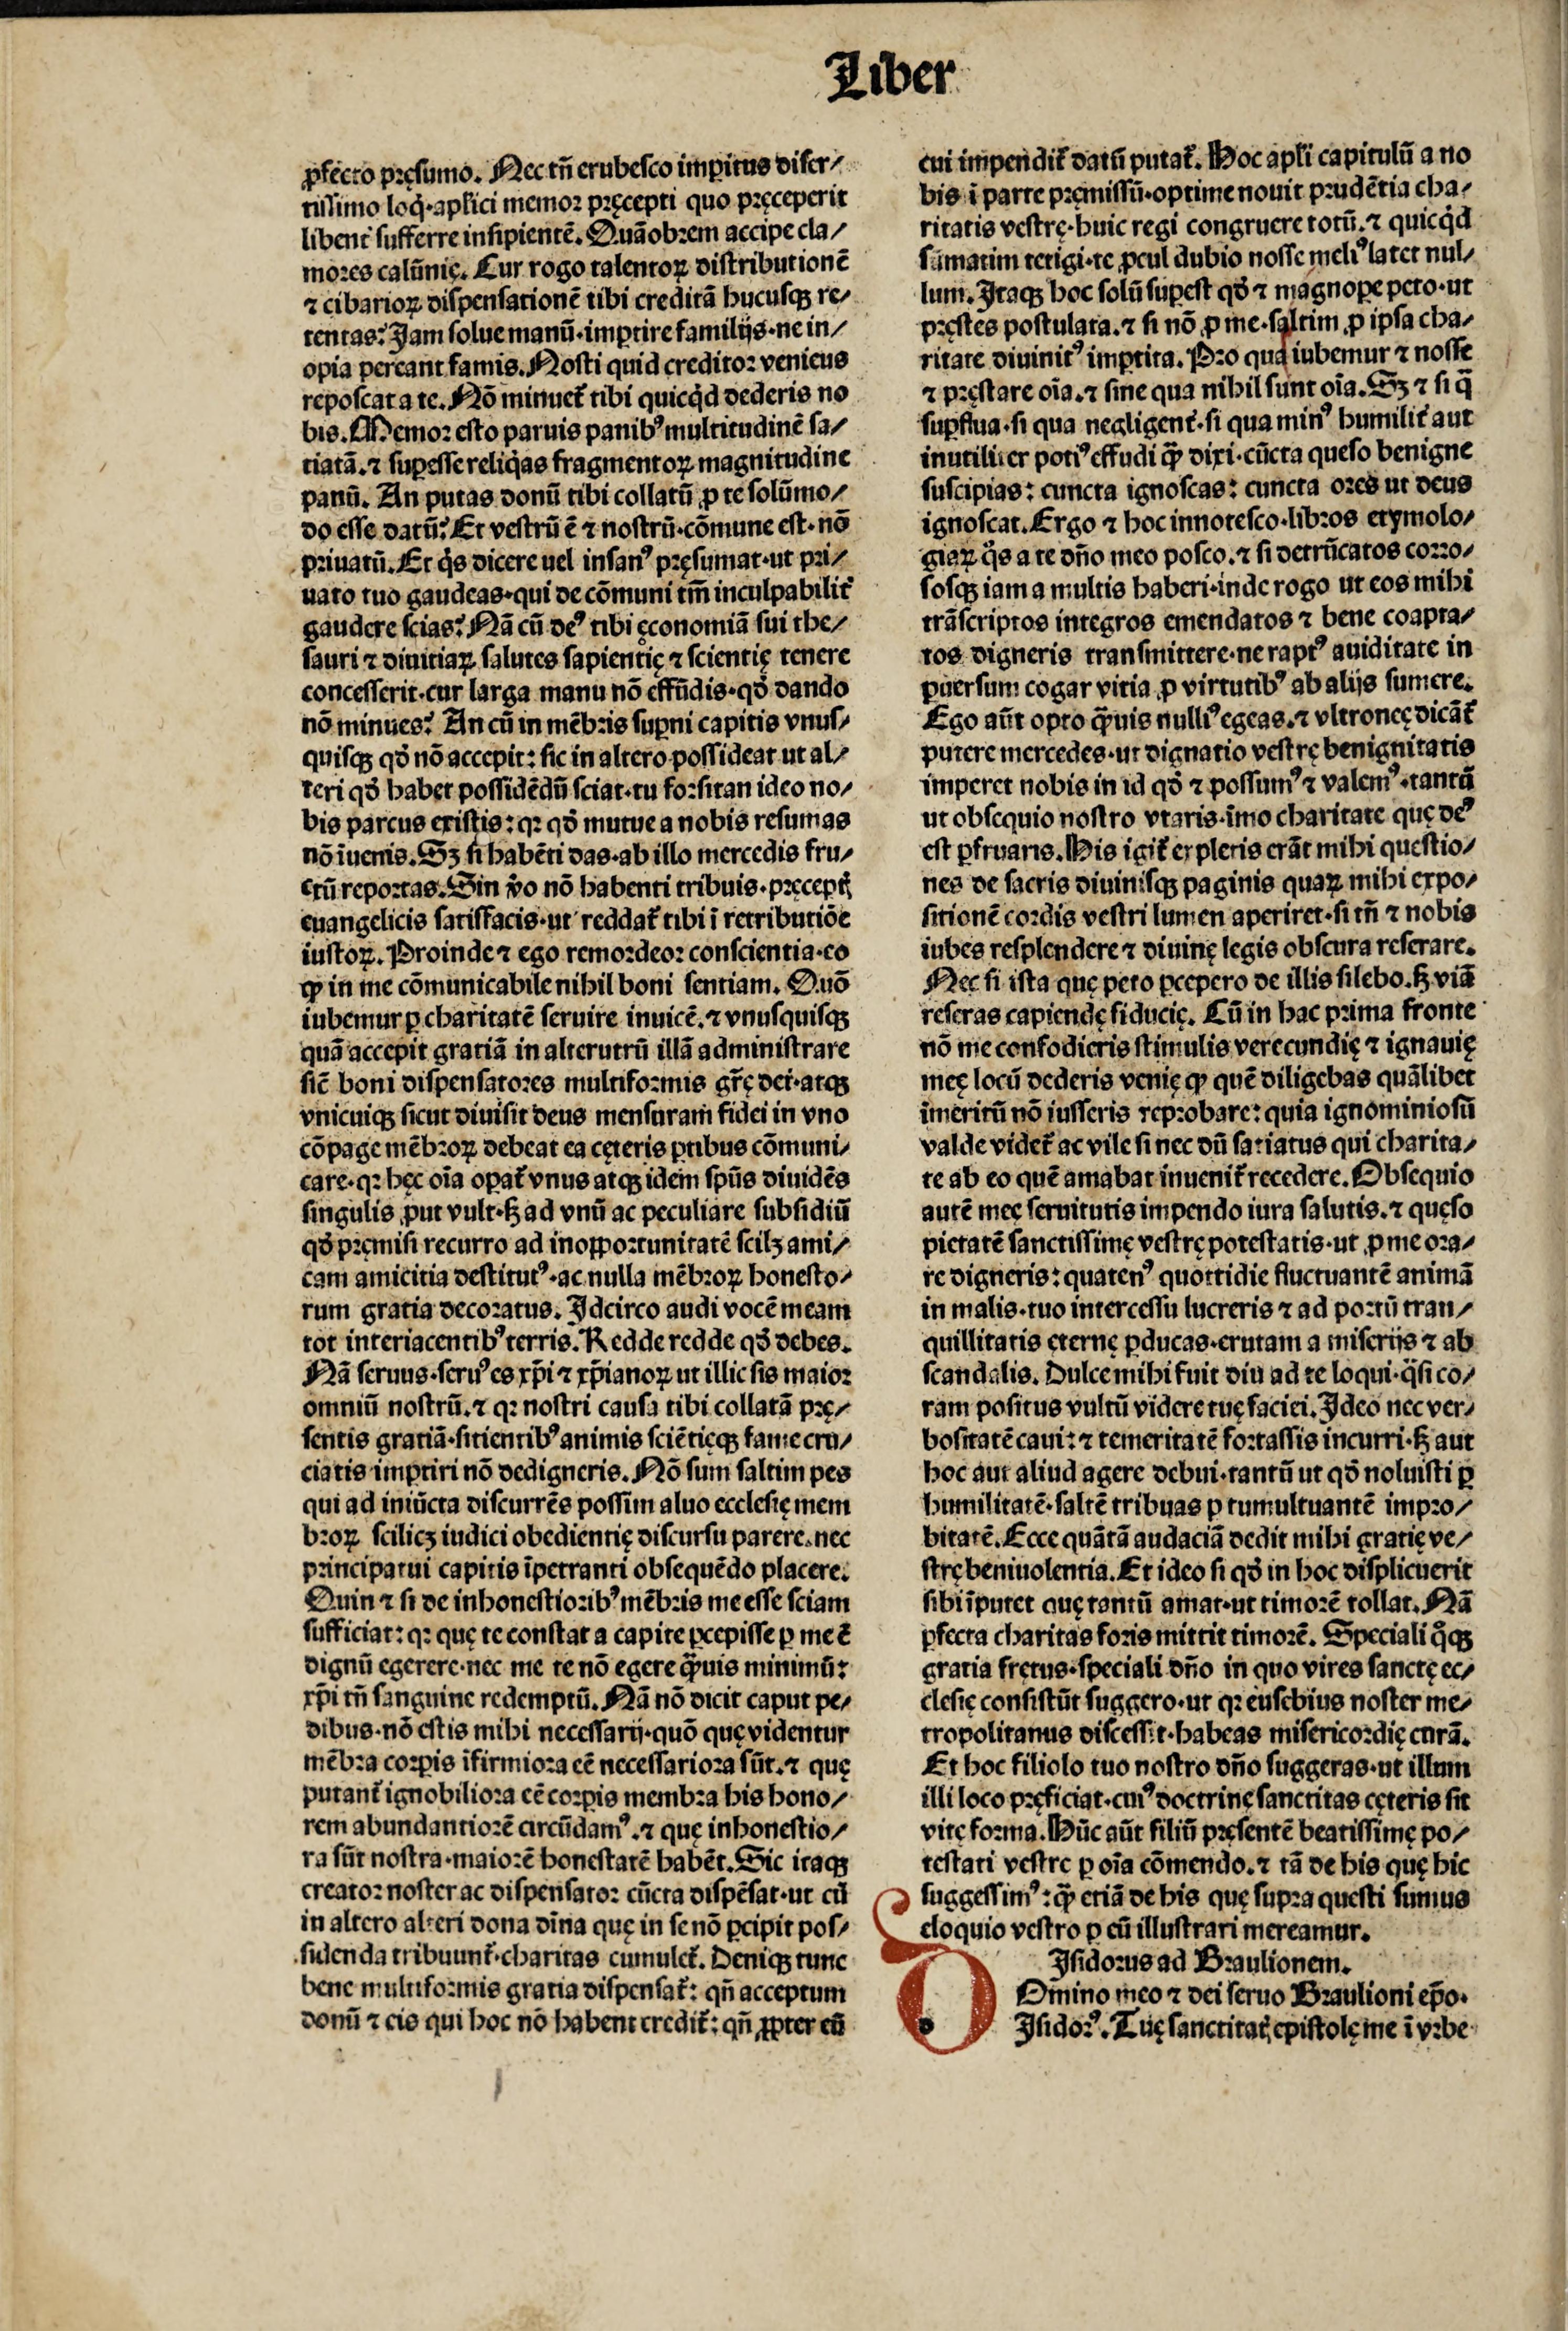 Liber
ꝓfecto pręſumo. Nec tñ erubeſco imꝑitus diſer/
tiſſimo loq̇·apl̓ici memor pręcepti quo pręceperit
libent̓ ſufferre inſipientē. Quāobrem accipe cla/
mores calūnię. Cur rogo talentoꝝ diſtributionē
⁊ cibarioꝝ diſpenſationē tibi creditā hucuſqꝫ re/
tentas? Jam ſolue manū·imꝑtire familijs·ne in/
opia pereant famis. Noſti quid creditor veniens
repoſcat a te. Nō minuet̓ tibi quicq̇d dederis no
bis. Memor eſto paruis panibꝰ multitudinē ſa/
tiatā.⁊ ſuꝑeſſe reliq̇as fragmentoꝝ magnitudine
panū. An putas donū tibi collatū ꝓ te ſolūmo/
do eſſe datū? Et veſtrū ē ⁊ noſtrū·cōmune eſt·nō
priuatū. Et q̇s dicere uel inſanꝰ pręſumat·ut pri/
uato tuo gaudeas·qui de cōmuni tm̄ inculpabilit̓
gaudere ſcias? Nā cū deꝰ tibi ęconomiā ſui the/
ſauri ⁊ diuitiaꝝ ſalutes ſapientię ⁊ ſcientię tenere
conceſſerit·cur larga manu nō effūdis·qd̓ dando
nō minues? An cū in mēbris ſuꝑni capitis vnuſ/
quiſqꝫ qd̓ nō accepit: ſic in altero poſſideat ut al/
teri qd̓ habet poſſidēdū ſciat·tu forſitan ideo no/
bis parcus exiſtis: qꝛ qd̓ mutue a nobis reſumas
nō īuenis. Sꝫ ſi habēti das·ab illo mercedis fru/
ctū reportas. Sin v̓o nō habenti tribuis·pręceptꝭ
euangelicis ſatiſfacis·ut reddat̓ tibi ī retributiōe
iuſtoꝝ. Proinde ⁊ ego remordeor conſcientia·eo
ꝙ in me cōmunicabile nihil boni ſentiam. Quō
iubemur ꝑ charitatē ſeruire inuicē.⁊ vnuſquiſqꝫ
quā accepit gratiā in alterutrū illā adminiſtrare
ſic̄ boni diſpenſatores multiformis gr̄ę dei·atqꝫ
vnicuiqꝫ ſicut diuiſit deus menſuram fidei in vno
cōpage mēbroꝝ debeat ea cęteris ꝑtibus cōmuni/
care·qꝛ hęc oīa oꝑat̓ vnus atqꝫ idem ſpūs diuidēs
ſingulis ꝓut vult·ꝗ̃ ad vnū ac peculiare ſubſidiū
qd̓ pręmiſi recurro ad inopportunitatē ſcilꝫ ami/
cam amicitia deſtitutꝰ·ac nulla mēbroꝝ honeſto/
rum gratia decoratus. Jdcirco audi vocē meam
tot interiacentibꝰ terris. Redde redde qd̓ debes.
Nā ſeruus·ſeruꝰ es xp̄i ⁊ xp̄ianoꝝ ut illic ſis maior
omniū noſtrū.⁊ qꝛ noſtri cauſa tibi collatā prę/
ſentis gratiā·ſitientibꝰ animis ſciētięqꝫ fame cru/
ciatis imꝑtiri nō dedigneris. Nō ſum ſaltim pes
qui ad iniūcta diſcurrēs poſſim aluo eccleſię mem
broꝝ ſcilicꝫ iudici obedientię diſcurſu parere·nec
principatui capitis īperranti obſequēdo placere.
Quin ⁊ ſi de inhoneſtioribꝰ mēbris me eſſe ſciam
ſufficiat: qꝛ quę te conſtat a capite ꝑcepiſſe ꝑ me ē
dignū egerere·nec me te nō egere q̃uis minimū:
xp̄i tñ ſanguine redemptū. Nā nō dicit caput pe/
dibus·nō eſtis mihi neceſſarij·quō quę videntur
mēbra corꝑis īfirmiora eē neceſſariora ſūt.⁊ quę
putant̓ ignobiliora eē corꝑis membra his hono/
rem abundantiorē circūdamꝰ.⁊ quę inhoneſtio/
ra ſūt noſtra·maiorē honeſtatē habēt. Sic itaqꝫ
creator noſter ac diſpenſator cūcta diſpēſat·ut cū
in altero alteri dona dīna quę in ſe nō ꝑcipit poſ/
ſidenda tribuunt̓·charitas cumulet̓. Deniqꝫ tunc
bene multiformis gratia diſpenſat̓: qñ acceptum
donū ⁊ eis qui hoc nō habent credit̓: qñ ꝓpter eū
cui impendit̓ datū putat̓. Hoc apl̓i capitulū a no
bis ī parte pręmiſſū·optime nouit prudētia cha/
ritatis veſtrę·huic regi congruere totū.⁊ quicq̇d
ſūmatim tetigi·te ꝓcul dubio noſſe meliꝰ latet nul/
lum. Jtaqꝫ hoc ſolū ſuꝑeſt qd̓ ⁊ magnopꝑe peto·ut
pręſtes poſtulata.⁊ ſi nō ꝓ me·ſaltim ꝓ ipſa cha/
ritate diuinitꝰ imꝑtita. Pro qua iubemur ⁊ noſſe
⁊ pręſtare oīa.⁊ ſine qua nihil ſunt oīa. Sꝫ ⁊ ſi q̄
ſuꝑflua·ſi qua negligent̓·ſi qua minꝰ humilit̓ aut
inutiliter potiꝰ effudi q̃ dixi·cūcta queſo benigne
ſuſcipias: cuncta ignoſcas: cuncta ores ut deus
ignoſcat. Ergo ⁊ hoc innoteſco·libros etymolo/
giaꝝ q̊s a te dño meo poſco.⁊ ſi detrūcatos corro/
ſoſqꝫ iam a multis haberi·inde rogo ut eos mihi
trāſcriptos integros emendatos ⁊ bene coapta/
tos digneris tranſmittere·ne raptꝰ auiditate in
ꝑuerſum cogar vitia ꝓ virtutibꝰ ab alijs ſumere.
Ego aūt opto q̃uis nulliꝰ egeas.⁊ vltroneę dicāt̓
putere mercedes·ut dignatio veſtrę benignitatis
imperet nobis in id qd̓ ⁊ poſſumꝰ ⁊ valemꝰ·tantū
ut obſequio noſtro vtaris·īmo charitate quę deꝰ
eſt ꝑfruaris. His igit̓ expletis erāt mihi queſtio/
nes de ſacris diuiniſqꝫ paginis quaꝝ mihi expo/
ſitionē cordis veſtri lumen aperiret·ſi tñ ⁊ nobis
iubes reſplendere ⁊ diuinę legis obſcura reſerare.
Nec ſi iſta quę peto ꝑcepero de illis ſilebo.ꝗ̃ viā
reſeras capiendę fiducię. Cū in hac prima fronte
nō me confodieris ſtimulis verecundię ⁊ ignauię
meę locū dederis venię ꝙ quē diligebas quālibet
īmeritū nō iuſſeris reprobare: quia ignominioſū
valde videt̓ ac vile ſi nec dū ſatiatus qui charita/
te ab eo quē amabat inuenit̓ recedere. Obſequio
autē meę ſeruitutis impendo iura ſalutis.⁊ queſo
pietatē ſanctiſſimę veſtrę poteſtatis·ut ꝓ me ora/
re digneris: quatenꝰ quottidie fluctuantē animā
in malis·tuo interceſſu lucreris ⁊ ad portū tran/
quillitatis ęternę ꝑducas·erutam a miſerijs ⁊ ab
ſcandalis. Dulce mihi fuit diu ad te loqui·q̄ſi co/
ram poſitus vultū videre tuę faciei. Jdeo nec ver/
boſitatē caui: ⁊ temeritatē fortaſſis incurri·ꝗ̃ aut
hoc aut aliud agere debui·tantū ut qd̓ noluiſti ꝑ
humilitatē·ſaltē tribuas ꝑ tumultuantē impro/
bitatē. Ecce quātā audaciā dedit mihi gratię ve/
ſtrę beniuolentia. Et ideo ſi qd̓ in hoc diſplicuerit
ſibi īputet quę tantū amat·ut timorē tollat. Nā
ꝑfecta charitas foris mittit timorē. Speciali q̊qꝫ
gratia fretus·ſpeciali dño in quo vires ſanctę ec/
cleſię conſiſtūt ſuggero·ut qꝛ euſebius noſter me/
tropolitanus diſceſſit·habeas miſericordię curā.
Et hoc filiolo tuo noſtro dño ſuggeras·ut illum
illi loco pręficiat·cuiꝰ doctrinę ſanctitas cęteris ſit
vitę forma. Hūc aūt filiū pręſentē beatiſſimę po/
teſtati veſtre ꝑ oīa cōmendo.⁊ tā de his quę hic
ſuggeſſimꝰ: q̃ etiā de his quę ſupra queſti ſumus
eloquio veſtro ꝑ eū illuſtrari mereamur.
Jſidorus ad Braulionem.
DOmino meo ⁊ dei ſeruo Braulioni ep̄o·
Jſidorꝰ. Tuę ſanctitatꝭ epiſtolę me ī vrbe